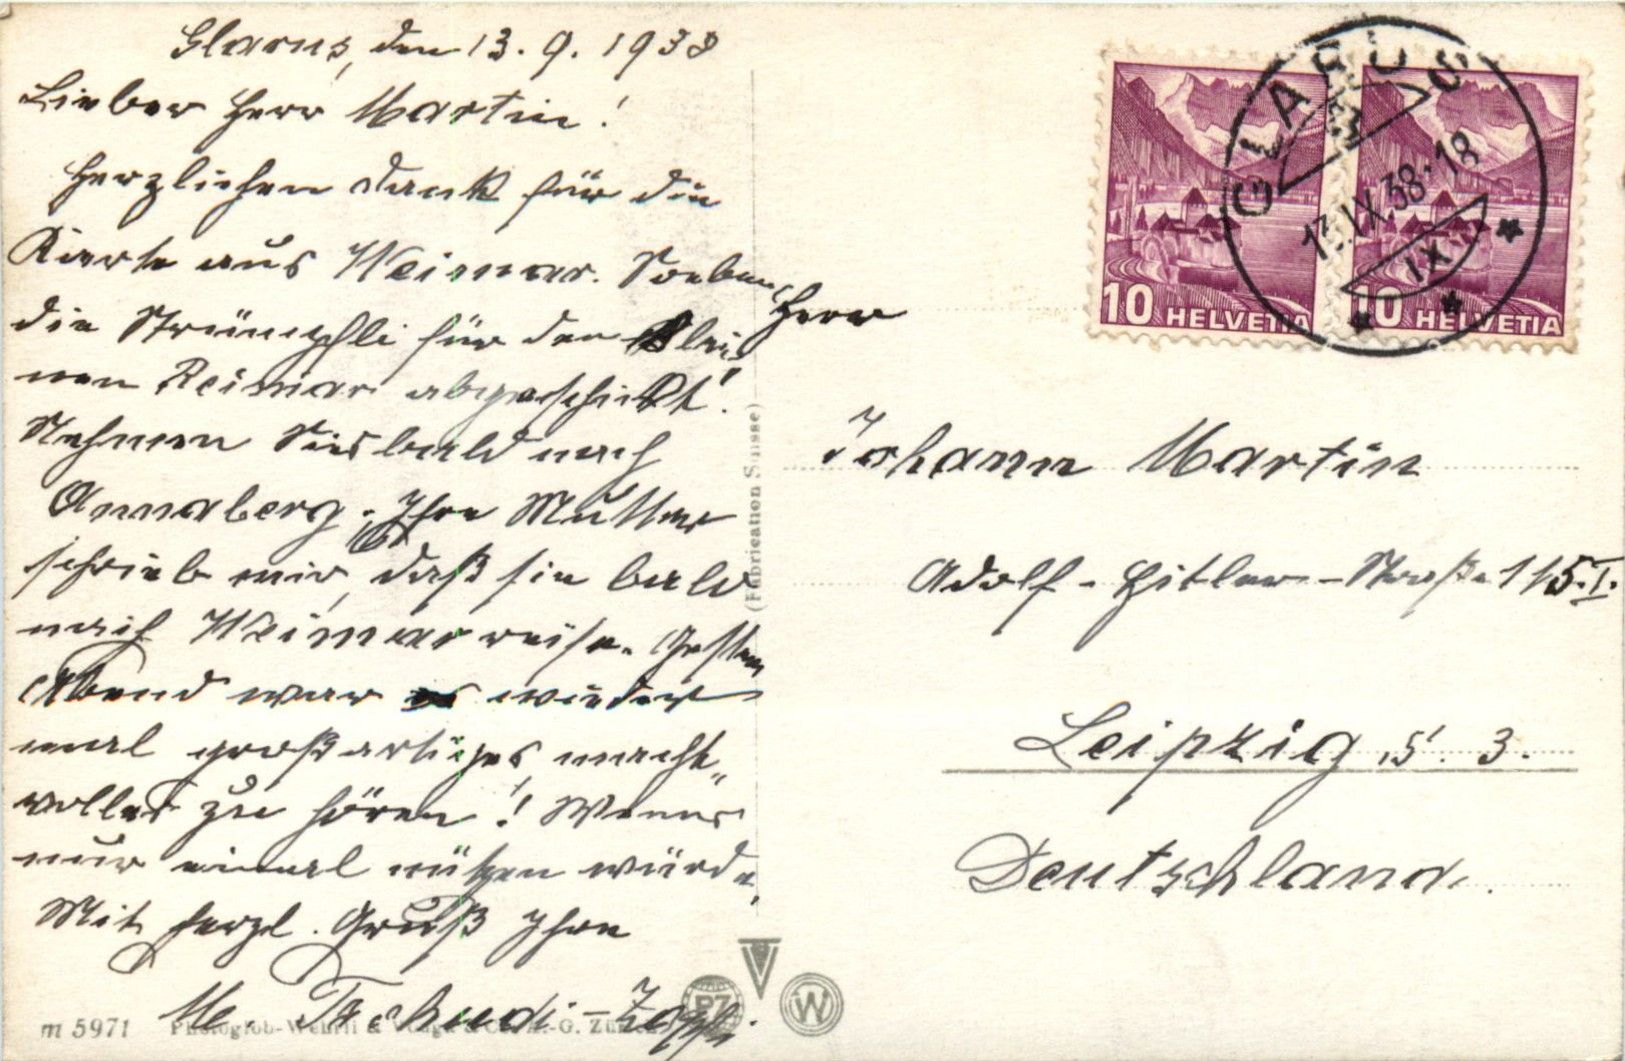 Glarus, den 13. 9. 1938
Lieber Herr Martin!
Herzlichen Dank für die
Karte aus Weimar. Soeben
die Strümpfli für den klei-
nen Reimar abgeschickt!
Nehmen Sie's bald nach
Annaberg; Ihre Mutter
schrieb mir, daß sie bald
nach Weimar reise. Gestern
Abend war es wieder
mal großartiges, macht-
volles zu hören! Wenns
nur einmal nützen würde.
Mit herzl. Gruß Ihre
M. Tschudi-Zopfi.
Herrn
Johann Martin
Adolf-Hitler-Straße 115.I.
Leipzig S. 3.
Deutschland.
GLARUS
13.IX.38.-18
IX
10 HELVETIA
10 HELVETIA
(Fabrication Suisse)
m 5971 Photoglob-Wehrli & Vouga & Co. A.-G. Zürich
PZ
V
W